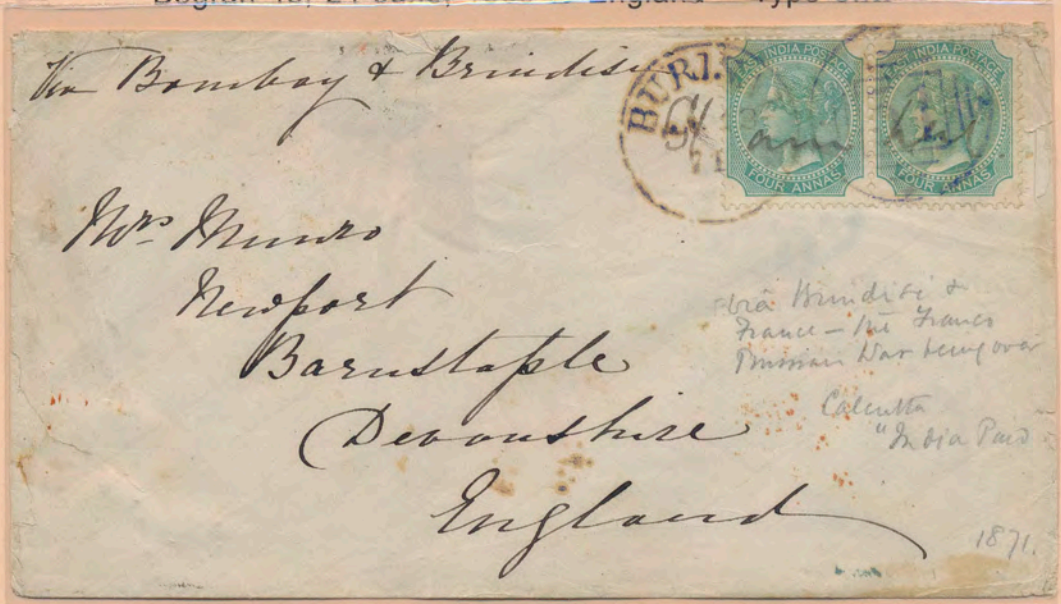 Via Bombay & Brindisi
BURI
71
EAST INDIA POSTAGE
FOUR ANNAS
EAST INDIA POSTAGE
FOUR ANNAS
Mrs Munro
Newport
Barnstaple
Devonshire
England
via Brindisi &
France — the Franco
Prussian War being over
Calcutta
"India Paid
1871.